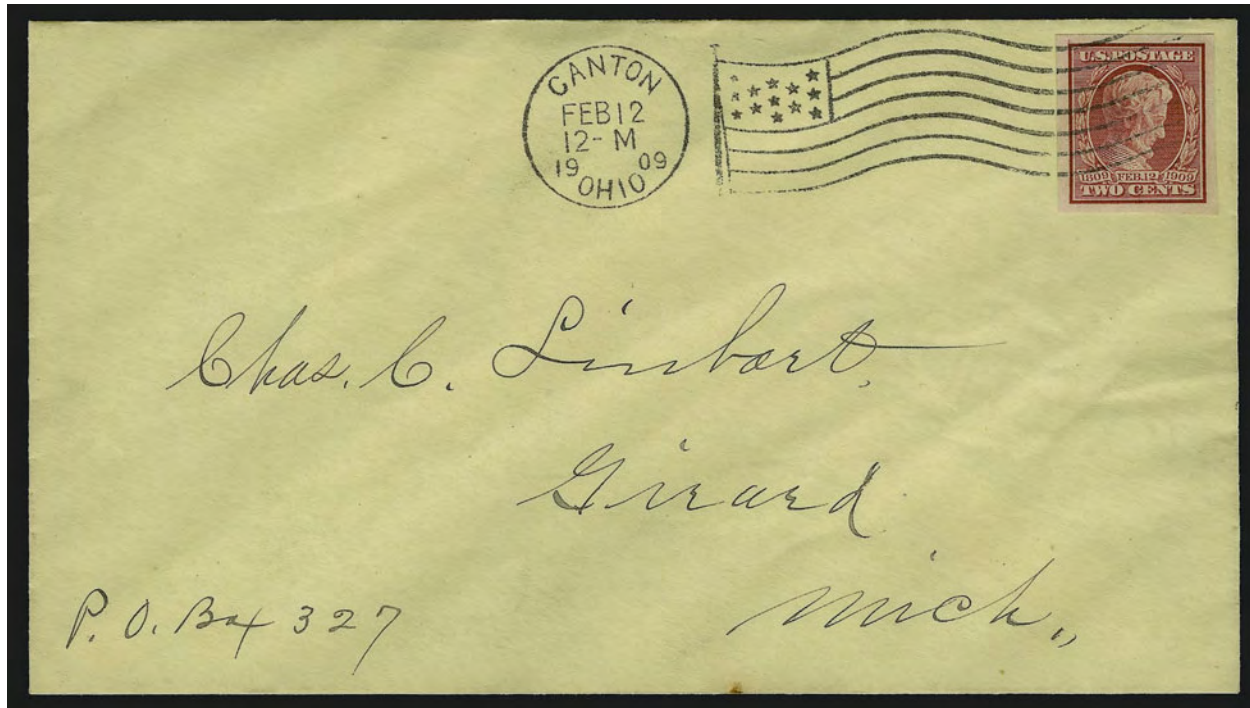 CANTON
FEB 12
12- M
19 09
OHIO
U.S. POSTAGE
1809 FEB. 12 1909
TWO CENTS
Chas. C. Linbart.
Girard
Mich.,
P. O. Box 327